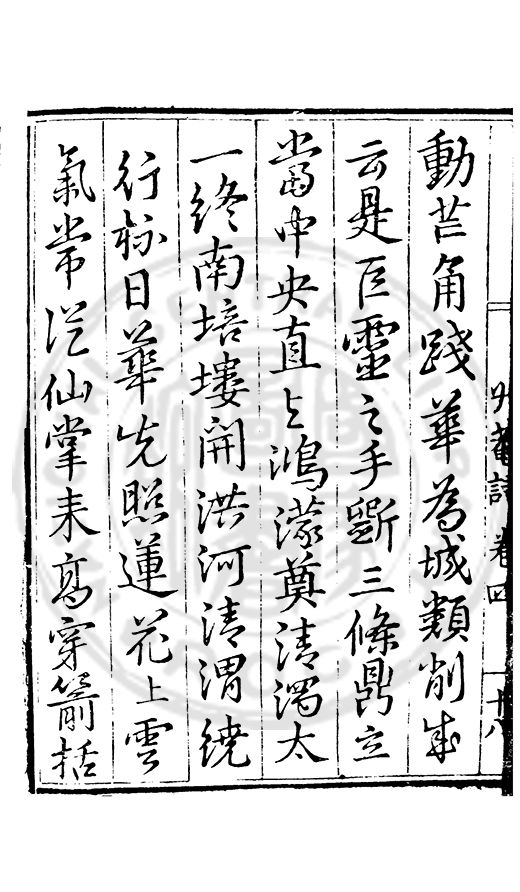 動芒角踐華為城類削成
云是巨靈之手斲三條鼎立
當中央直上鴻濛奠清濁太
一終南培塿開洪河清渭繞
行標日華先照蓮花上雲
氣常從仙掌來高穿箭栝
菴詩 卷四 十八